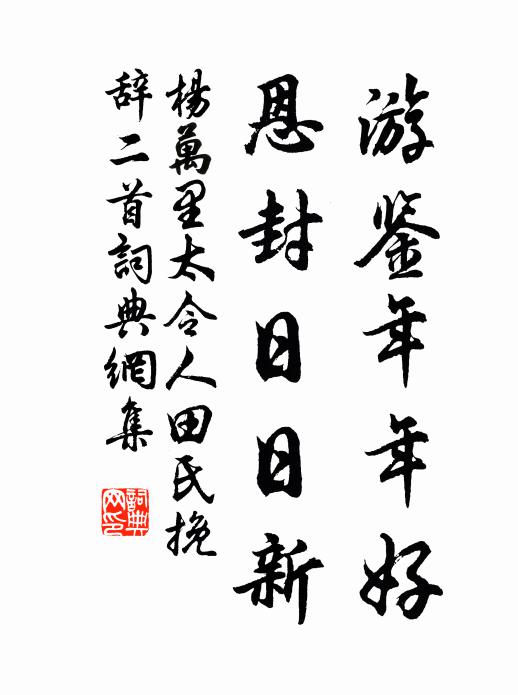 游鉴年年好
恩封日日新
楊萬里太令人田氏挽
辞二首詞典網集
詞典网印